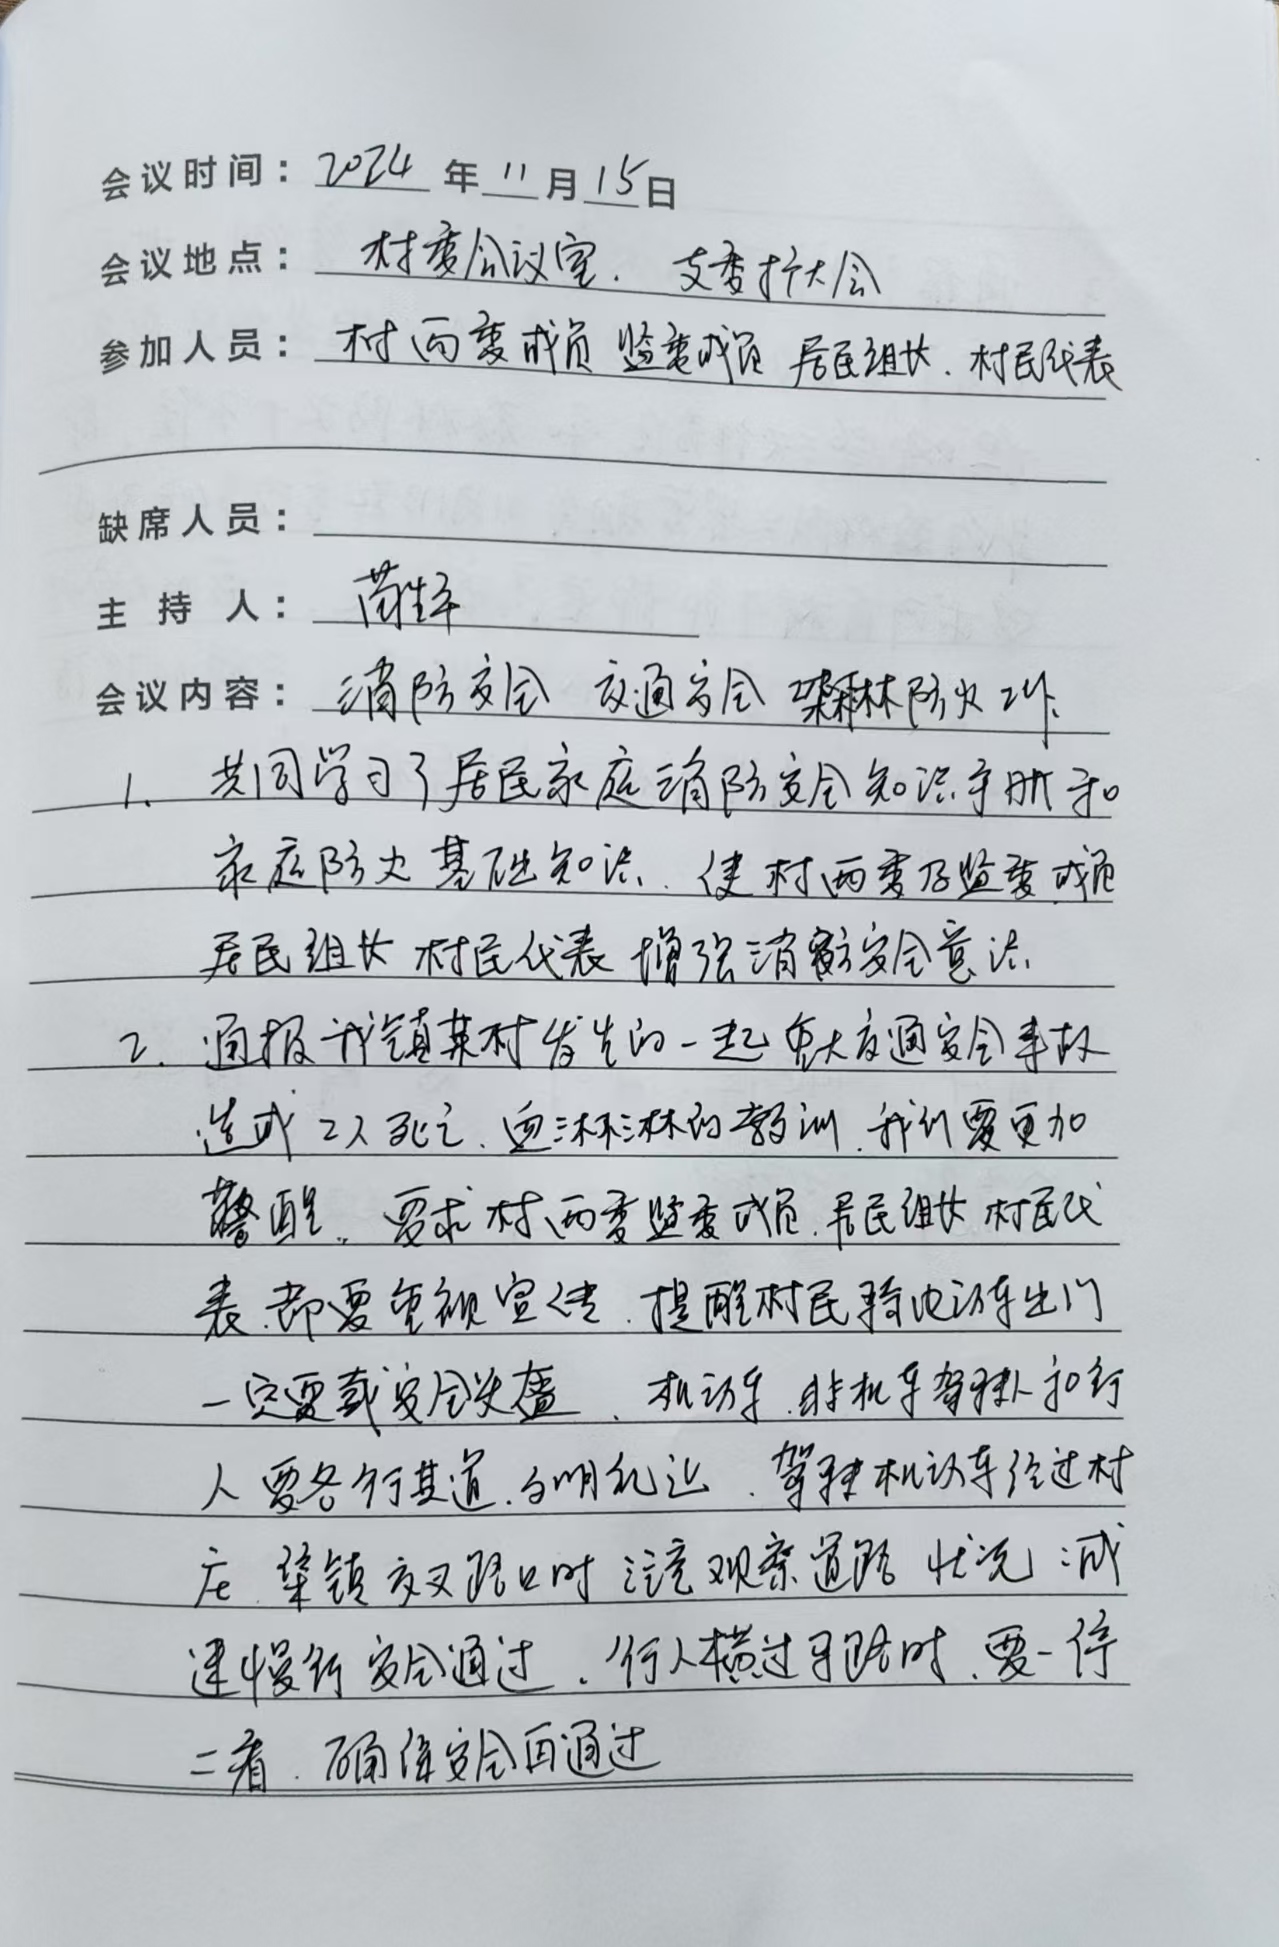 会议时间：2024年11月15日
会议地点：村委会议室．支委扩大会
参加人员：村两委成员 监委成员 居民组长．村民代表
缺席人员：
主持人：
会议内容：消防安全 交通安全 森林防火工作
1. 共同学习了居民家庭消防安全知识手册和
家庭防火基础知识．使村两委及监委成员
居民组长 村民代表 增强消防安全意识
2. 通报我镇某村发生的一起重大交通安全事故
造成2人死亡．血淋淋的教训．我们要更加
警醒．要求村两委监委成员．居民组长 村民代
表．都要重视宣传．提醒村民骑电动车出门
一定要戴安全头盔．机动车．非机车驾驶人和行
人要各行其道．文明礼让．驾驶机动车经过村
庄．集镇交叉路口时 注意观察道路状况 减
速慢行 安全通过．行人横过马路时．要一停
二看．确保安全再通过